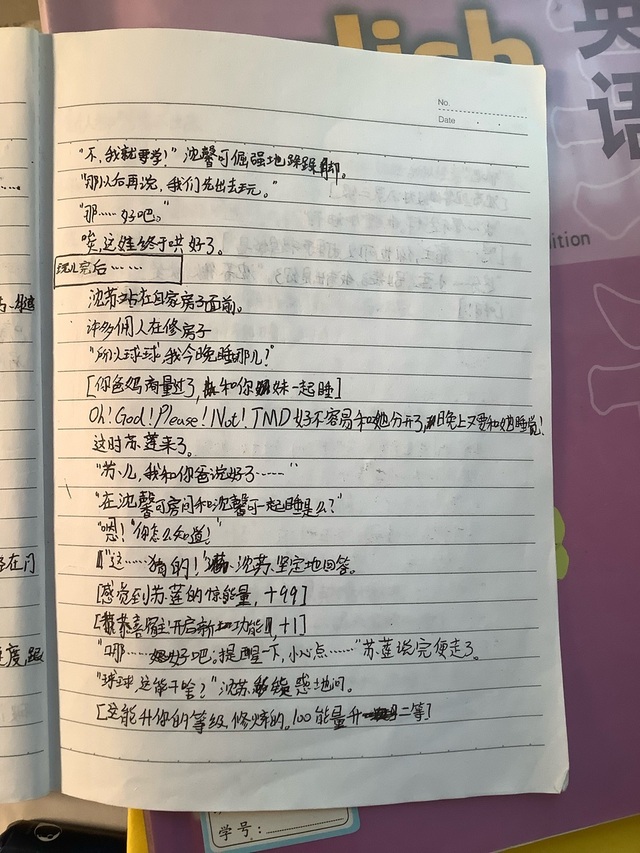 English
英语
ition
No.
Date
"不，我就要学！"沈馨可倔强地跺跺脚。
"那以后再说，我们先出去玩。"
"那……好吧。"
唉，这娃终于哄好了。
玩儿完后……
沈苏站在自家房子面前。
许多佣人在修房子
"所以球球，我今晚睡哪儿？"
[你爸妈商量过了，和你妹一起睡]
Oh！God！Please！Not！TMD好不容易和她分开了，晚上又要和她睡觉！
这时苏莲来了。
"苏儿，我和你爸说好了……"
"在沈馨可房间和沈馨可一起睡是么？"
"嗯！""你怎么知道！"
"这……猜的！"沈苏坚定地回答。
[感觉到苏莲的惊能量，+99]
[恭喜宿主开启新功能，+1]
"哪……好吧，提醒一下，小心点……"苏莲说完便走了。
"球球，这能干啥？"沈苏疑惑地问。
[这能升你的等级，修炼的。100能量升二等]
在门
度，
学号：